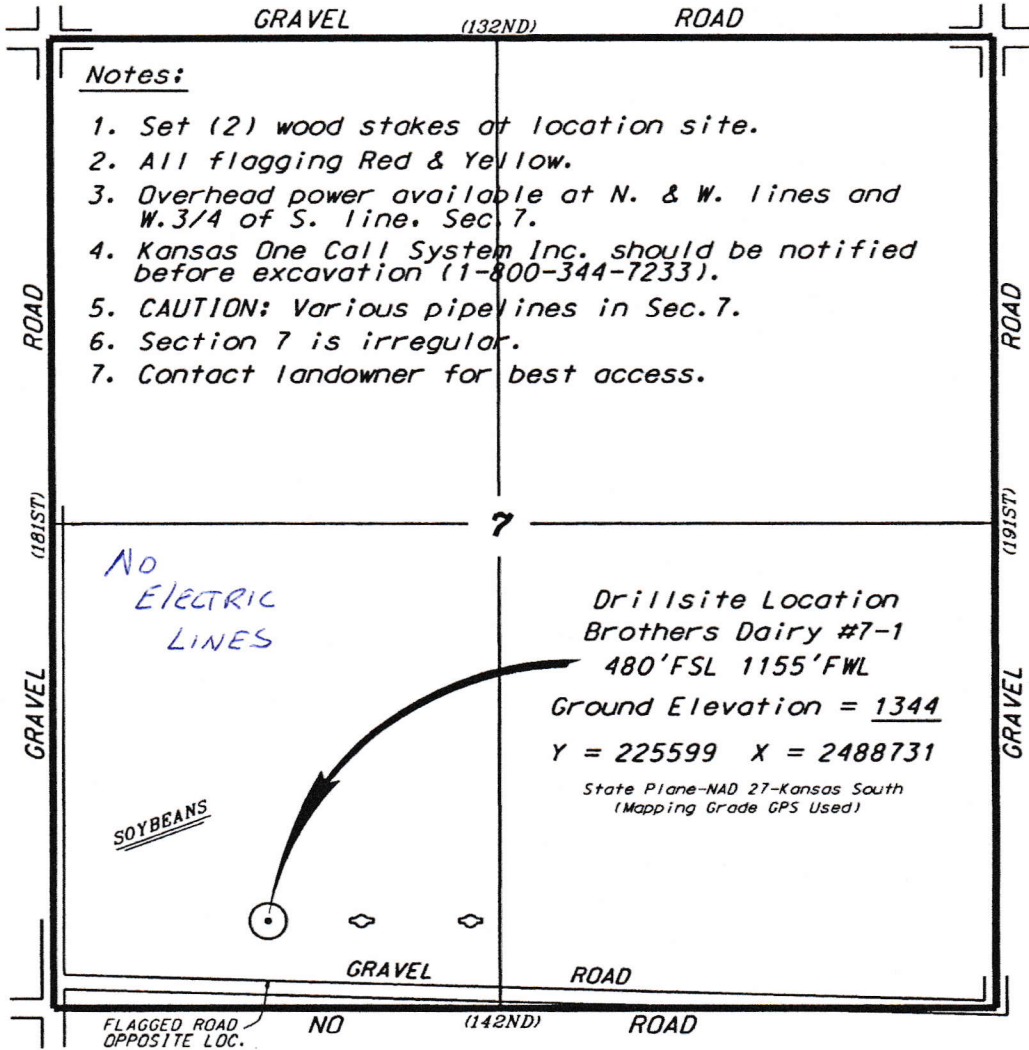 GRAVEL (132ND) ROAD
Notes:
1. Set (2) wood stakes at location site.
2. All flagging Red & Yellow.
3. Overhead power available at N. & W. lines and
W.3/4 of S. line. Sec. 7.
4. Kansas One Call System Inc. should be notified
before excavation (1-800-344-7233).
5. CAUTION: Various pipelines in Sec. 7.
6. Section 7 is irregular.
7. Contact landowner for best access.
ROAD
(181ST)
GRAVEL
ROAD
(191ST)
GRAVEL
7
NO
ELECTRIC
LINES
Drillsite Location
Brothers Dairy #7-1
480'FSL 1155'FWL
Ground Elevation = 1344
Y = 225599 X = 2488731
State Plane-NAD 27-Kansas South
(Mapping Grade GPS Used)
SOYBEANS
GRAVEL ROAD
FLAGGED ROAD
OPPOSITE LOC.
NO (142ND) ROAD